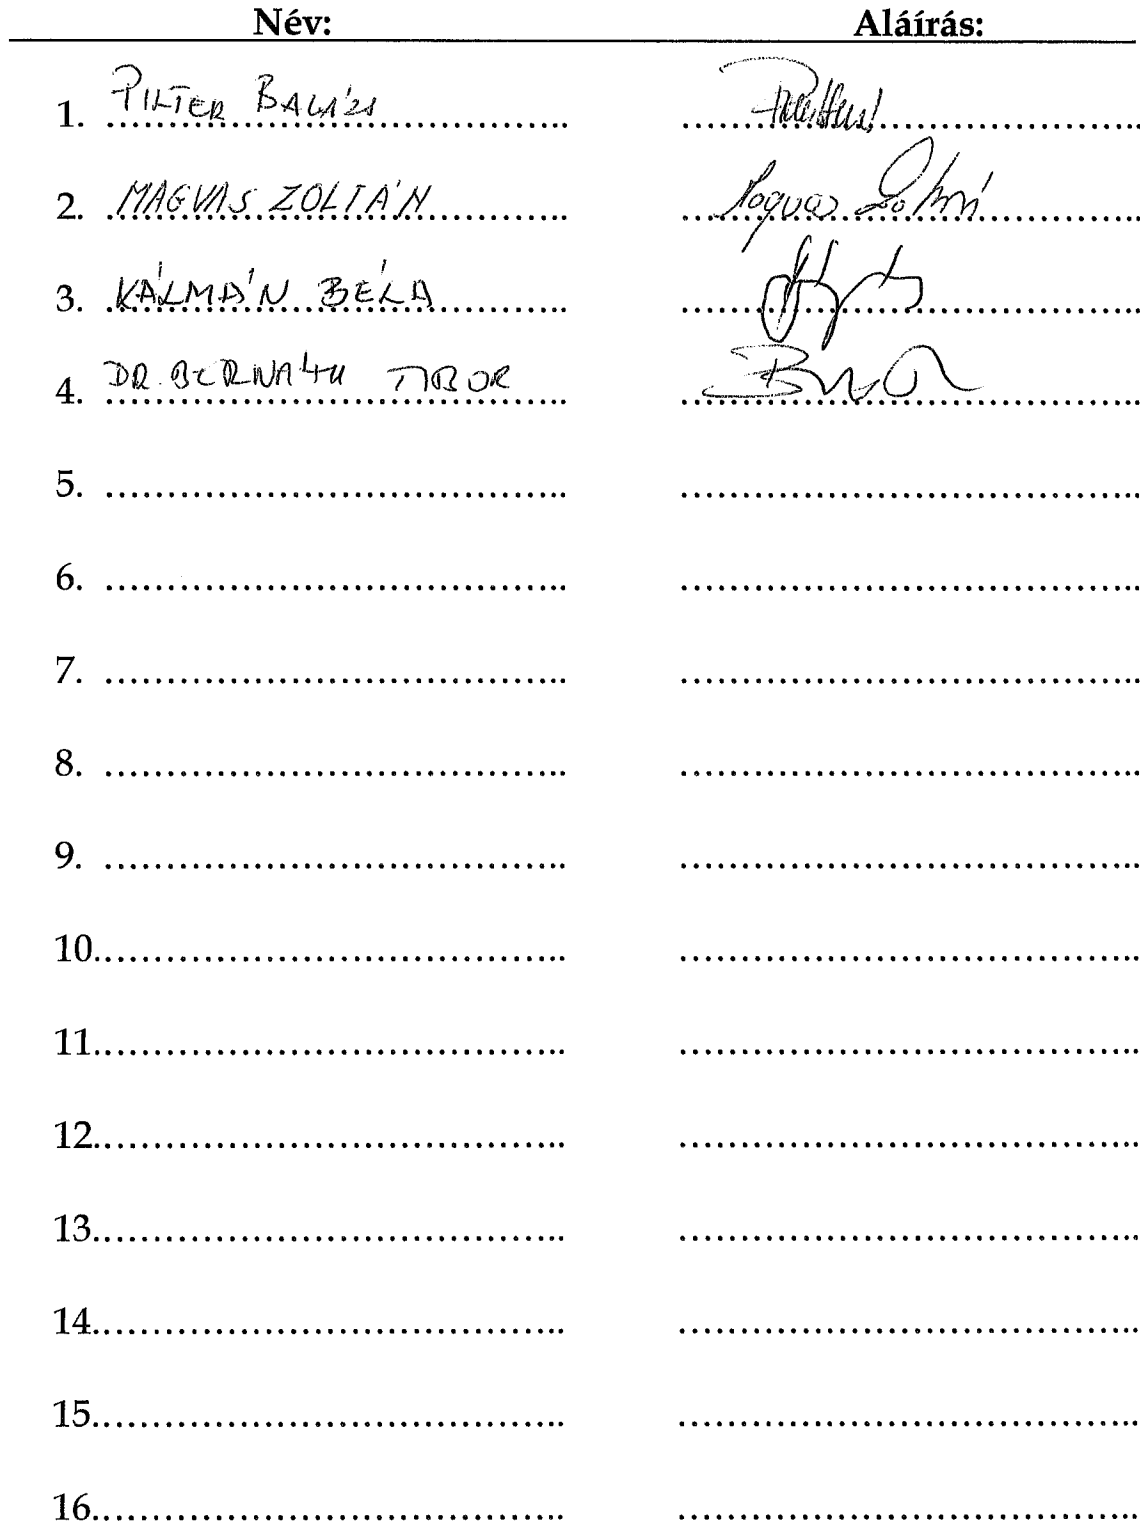 Név: Aláírás:
1. PILTER BALÁZS
2. MAGVAS ZOLTÁN
3. KÁLMÁN BÉLA
4. DR. BERNÁTH TIBOR
5.
6.
7.
8.
9.
10.
11.
12.
13.
14.
15.
16.